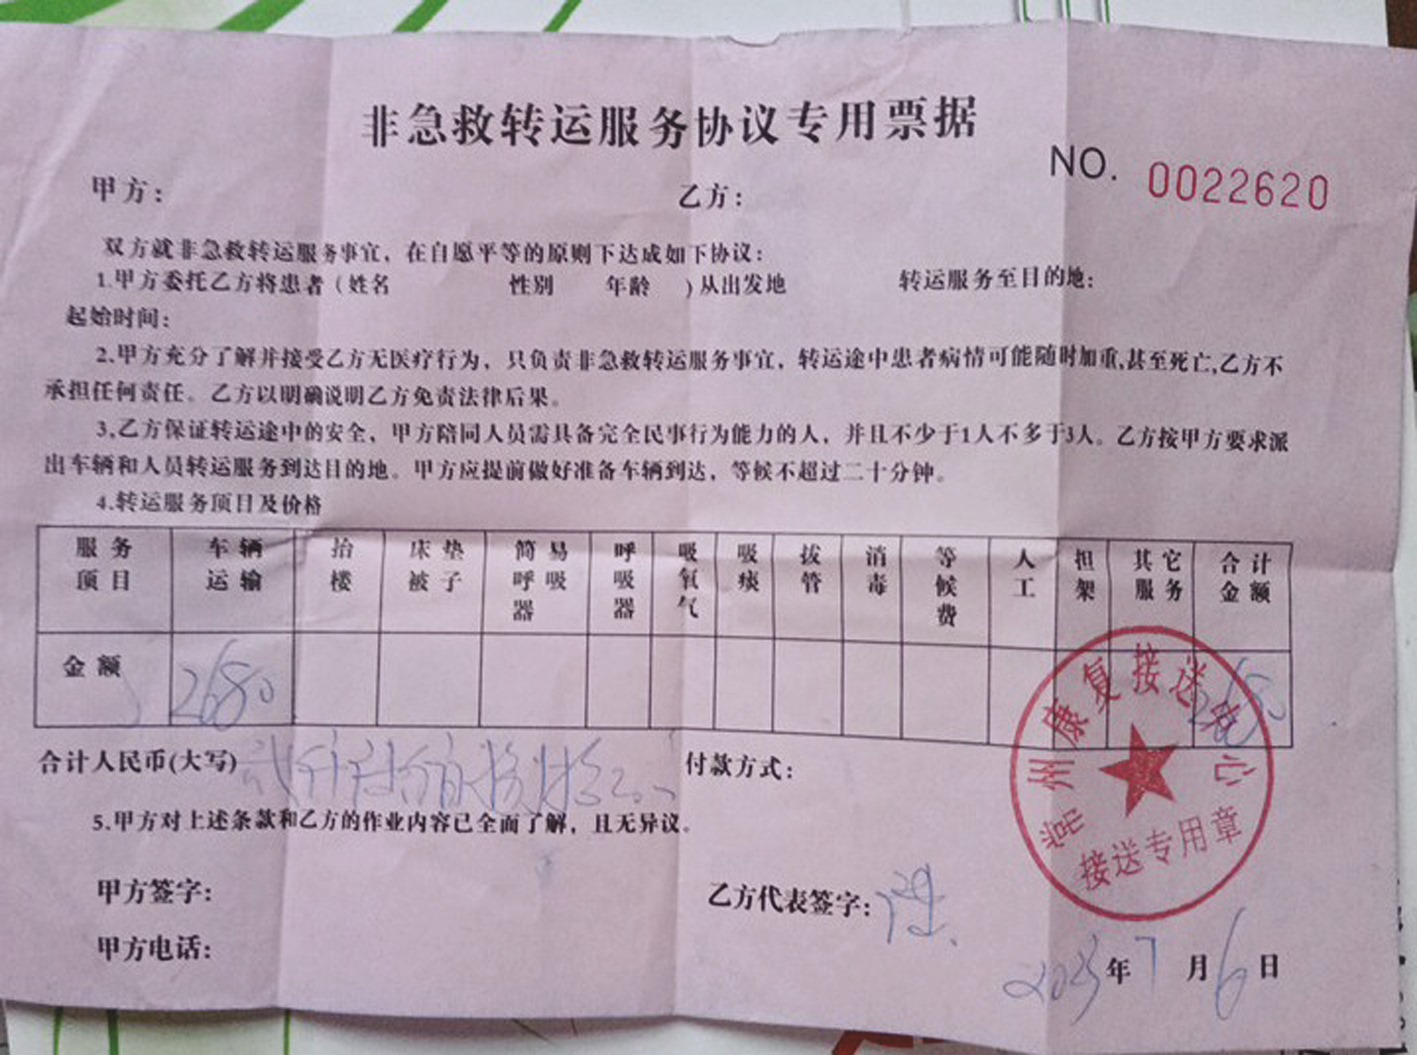 非急救转运服务协议专用票据
NO. 0022620
甲方： 乙方：
双方就非急救转运服务事宜，在自愿平等的原则下达成如下协议：
1.甲方委托乙方将患者（姓名 性别 年龄 )从出发地 转运服务至目的地：
起始时间：
2.甲方充分了解并接受乙方无医疗行为，只负责非急救转运服务事宜，转运途中患者病情可能随时加重,甚至死亡,乙方不
承担任何责任。乙方以明确说明乙方免责法律后果。
3.乙方保证转运途中的安全，甲方陪同人员需具备完全民事行为能力的人，并且不少于1人不多于3人。乙方按甲方要求派
出车辆和人员转运服务到达目的地。甲方应提前做好准备车辆到达，等候不超过二十分钟。
4.转运服务项目及价格
服务项目 车辆运输 抬楼 床垫被子 简易呼吸器 呼吸器 吸氧气 吸痰 拔管 消毒 等候费 人工 担架 其它服务 合计金额
金额 2680 2680
合计人民币(大写) 付款方式：
5.甲方对上述条款和乙方的作业内容已全面了解，且无异议。
甲方签字： 乙方代表签字：
甲方电话：
2023年7月6日
常州康复接送中心
接送专用章